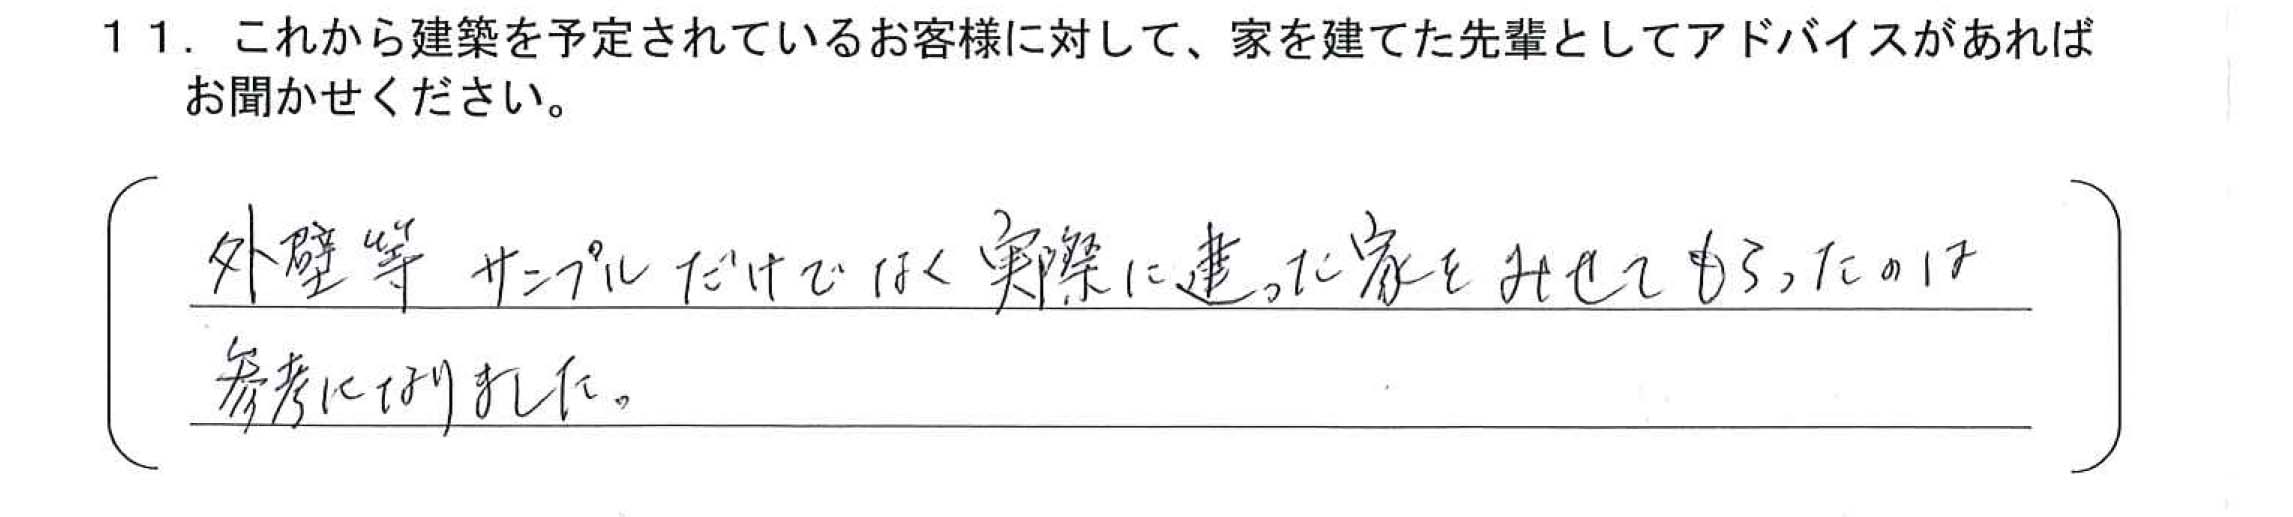 １１．これから建築を予定されているお客様に対して、家を建てた先輩としてアドバイスがあれば
お聞かせください。
外壁等 サンプルだけではく実際に建った家をみせてもらったのは
参考になりました。